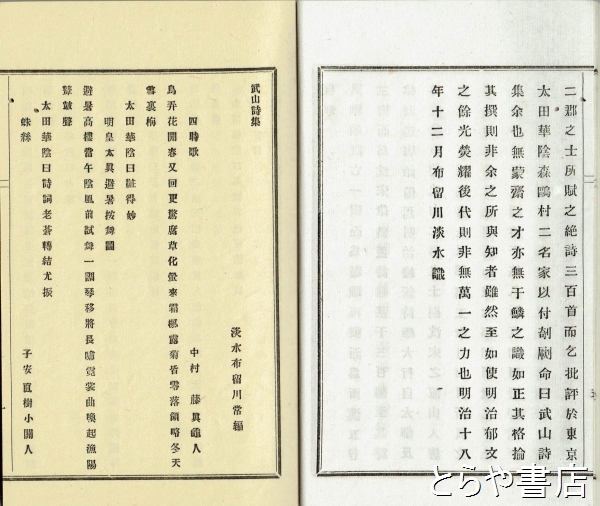 二郡之士所賦之絶詩三百首而乞批評於東京
太田華陰森鷗村二名家以付剞劂命曰武山詩
集余也無蒙齋之才亦無于鱗之識如正其格掄
其撰則非余之所與知者雖然至如使明治郁文
之餘光熒耀後代則非無萬一之力也明治十八
年十二月布留川淡水識
武山詩集
淡水布留川常編
四時歌
中村 藤眞龜人
鳥弄花開春又回更驚腐草化螢來霜楓露菊皆零落領略冬天
雪裏梅
太田華陰曰
明皇太眞避暑按舞圖
子安直樹小閑人
避暑高樓當午陰風前試舞一調琴移將長嘯霓裳曲喚起漁陽
鼙鼓聲
太田華陰曰詩詞老蒼轉結尤振
蛛絲
とらや書店